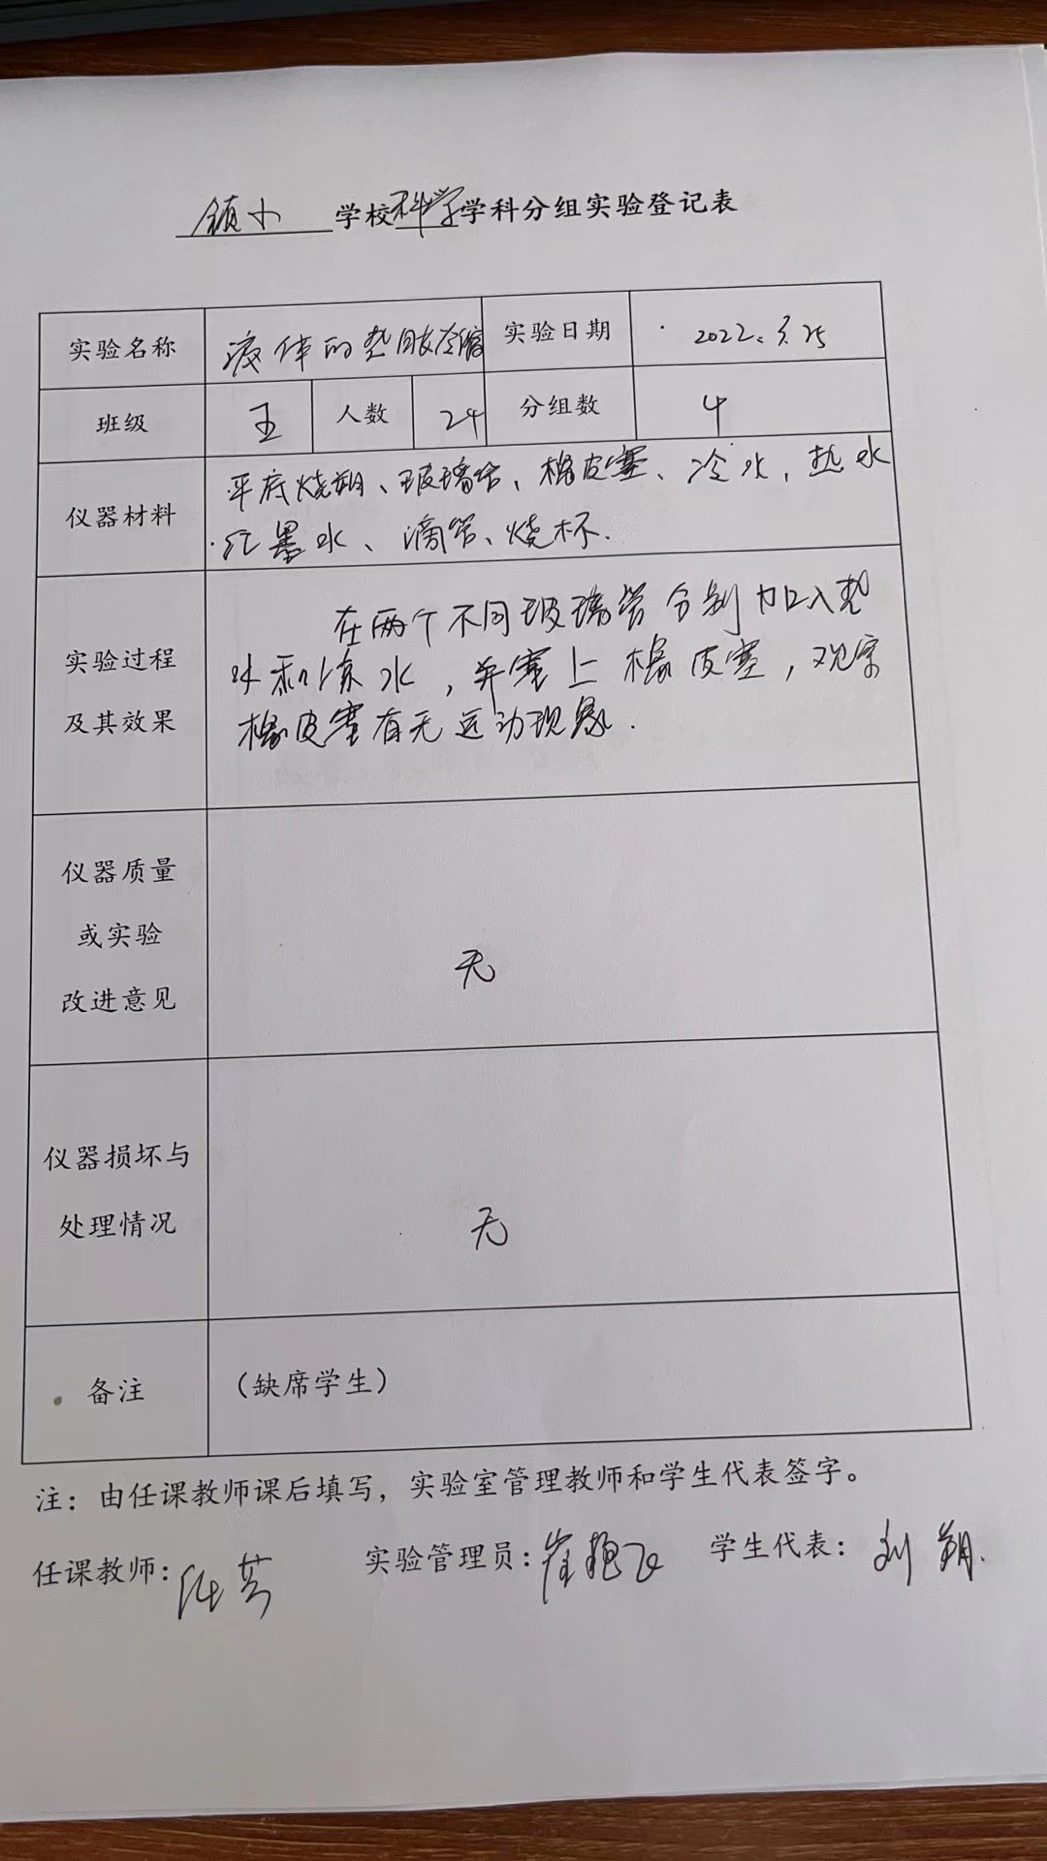 镇小 学校科学学科分组实验登记表
实验名称 液体的热胀冷缩 实验日期 2022.3.25
班级 五 人数 24 分组数 4
仪器材料
平底烧瓶、玻璃管、橡皮塞、冷水、热水
红墨水、滴管、烧杯.
实验过程
及其效果
在两个不同玻璃管分别加入热
水和冻水，并塞上橡皮塞，观察
橡皮塞有无运动现象.
仪器质量
或实验
改进意见
无
仪器损坏与
处理情况
无
备注 （缺席学生）
注：由任课教师课后填写，实验室管理教师和学生代表签字。
任课教师： 实验管理员：崔艳飞 学生代表：刘朔.